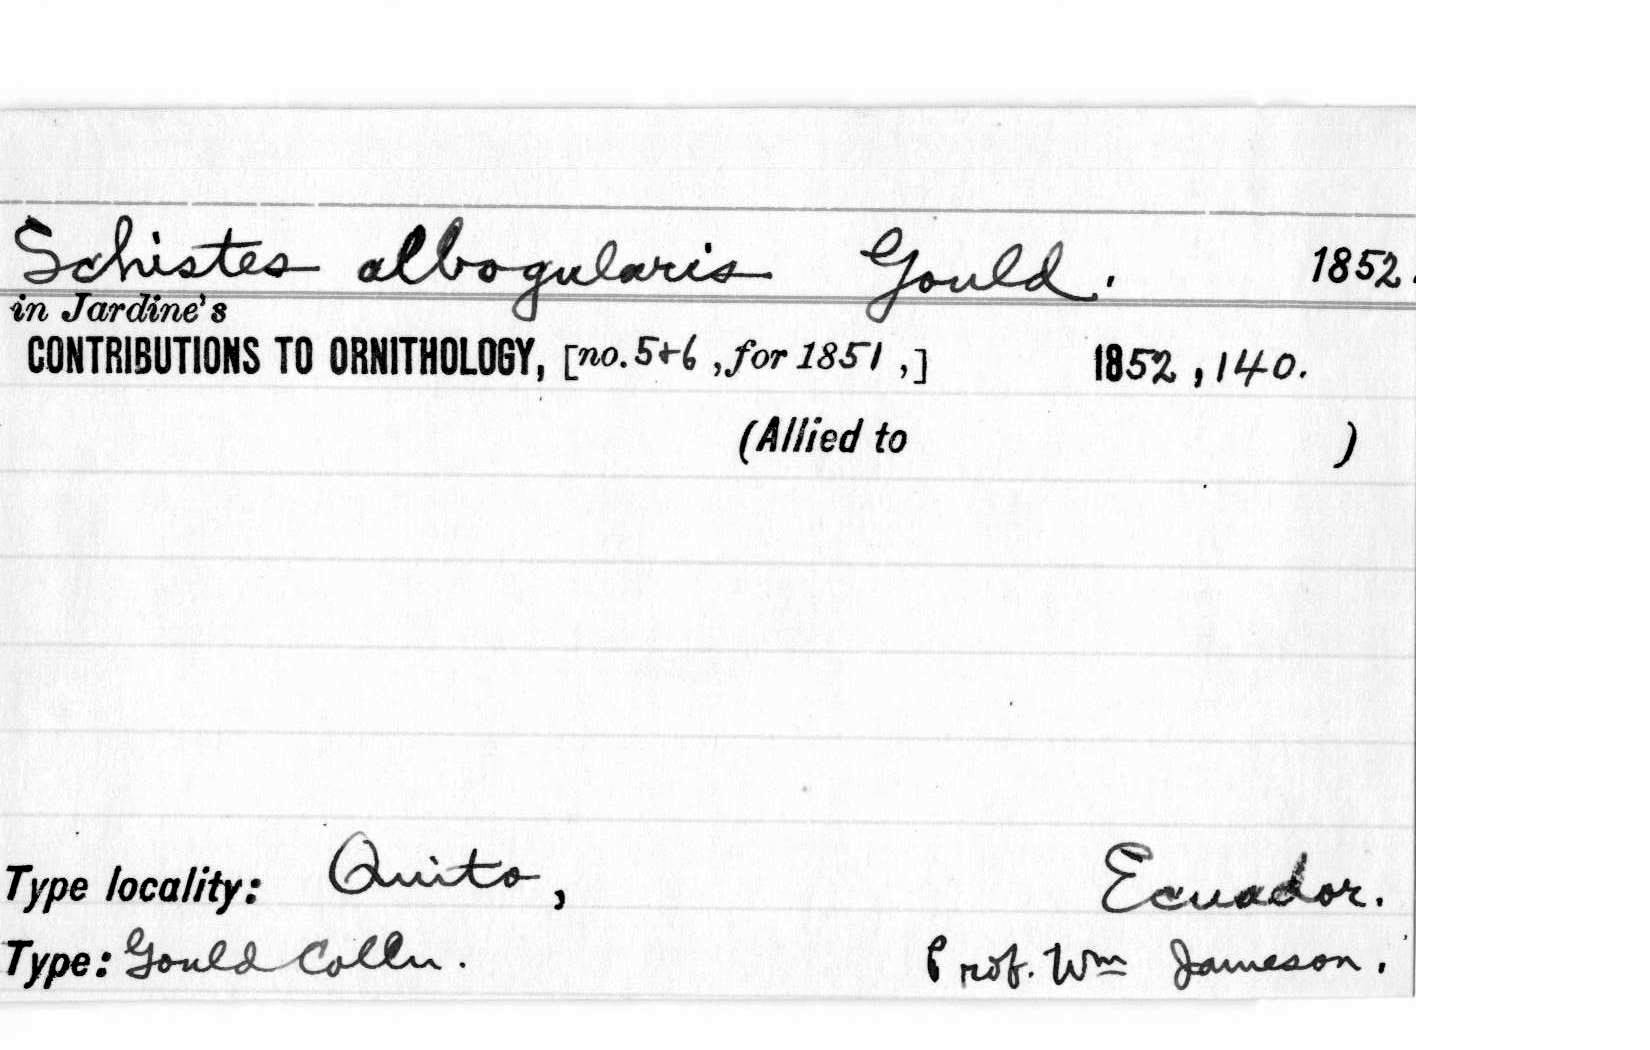 Schistes albogularis Gould. 1852.
in Jardine's
CONTRIBUTIONS TO ORNITHOLOGY, [no. 5+6, for 1851,] 1852, 140.
(Allied to )
Type locality: Quito, Ecuador.
Type: Gould Colln. Prof. Wm Jameson.